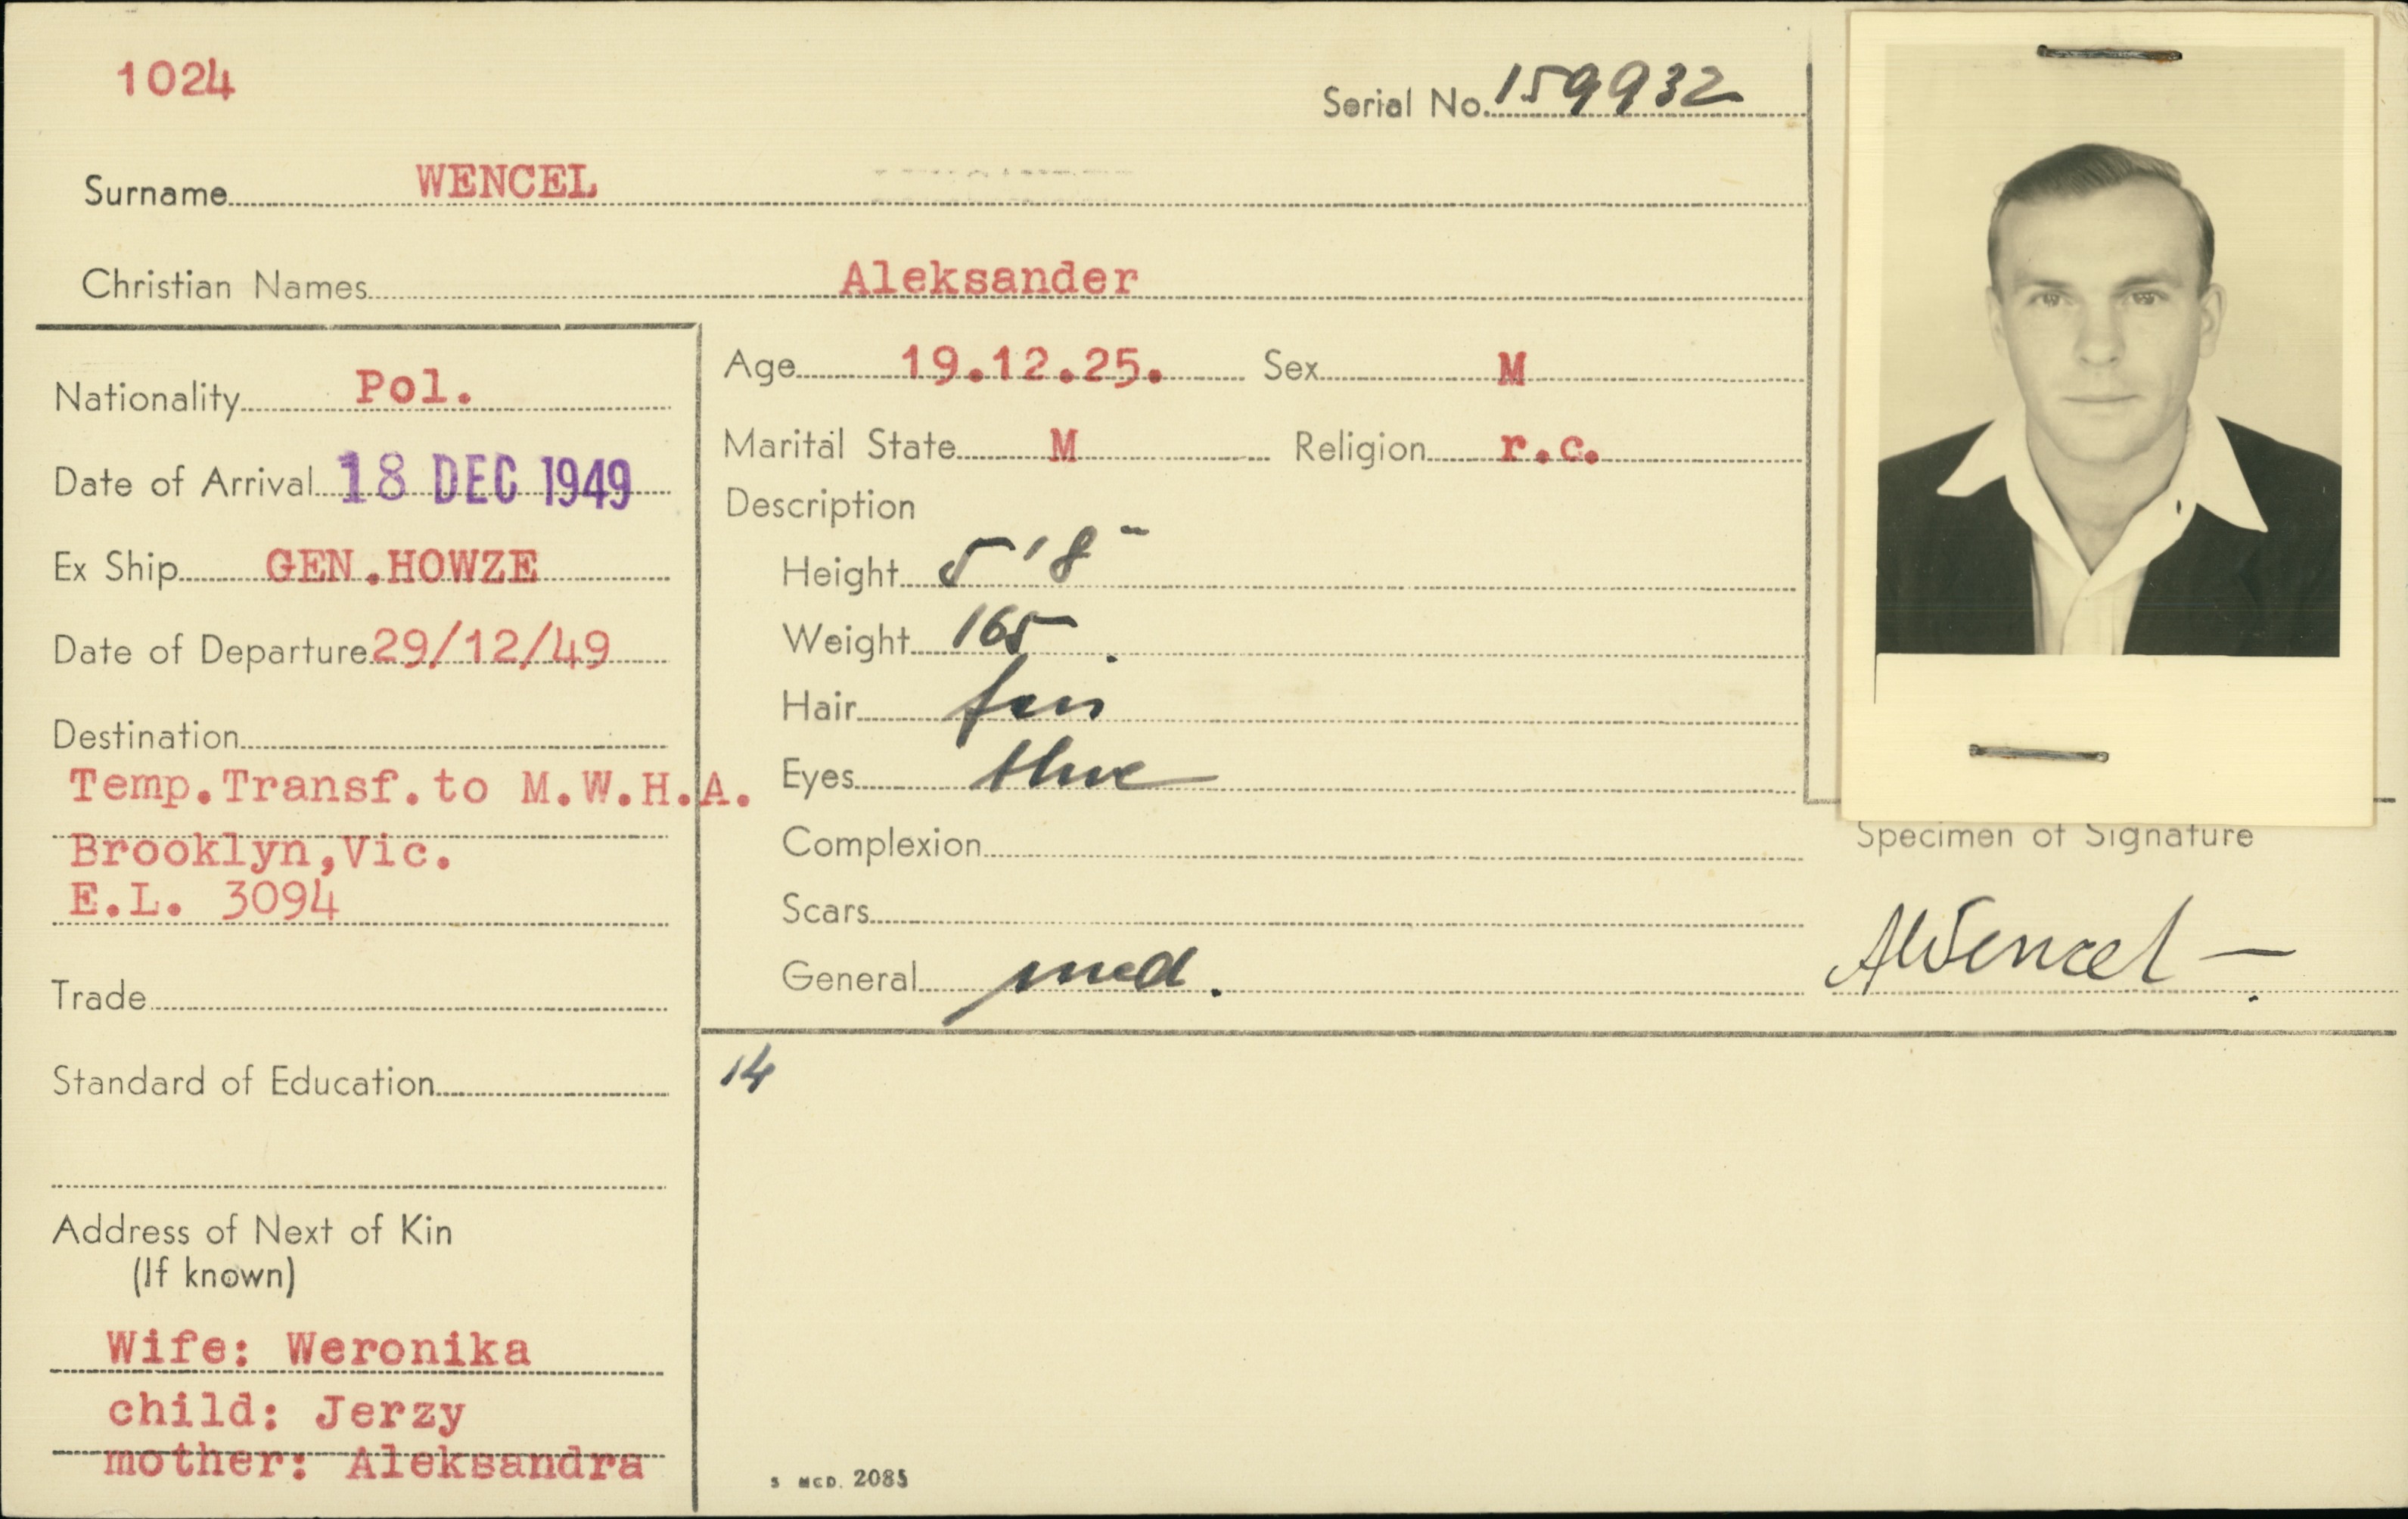 1024
Serial No. 159932
Surname WENCEL
Christian Names Aleksander
Nationality Pol.
Date of Arrival 18 DEC 1949
Ex Ship GEN.HOWZE
Date of Departure 29/12/49
Destination
Temp.Transf.to M.W.H.A.
Brooklyn,Vic.
E.L. 3094
Trade
Standard of Education
Address of Next of Kin
(If known)
Wife: Weronika
child: Jerzy
mother: Aleksandra
Age 19.12.25. Sex M
Marital State M Religion r.c.
Description
Height 5'8"
Weight 165
Hair fair
Eyes blue
Complexion
Scars
General med.
Specimen of Signature
AWencel
14
S MCD. 2085